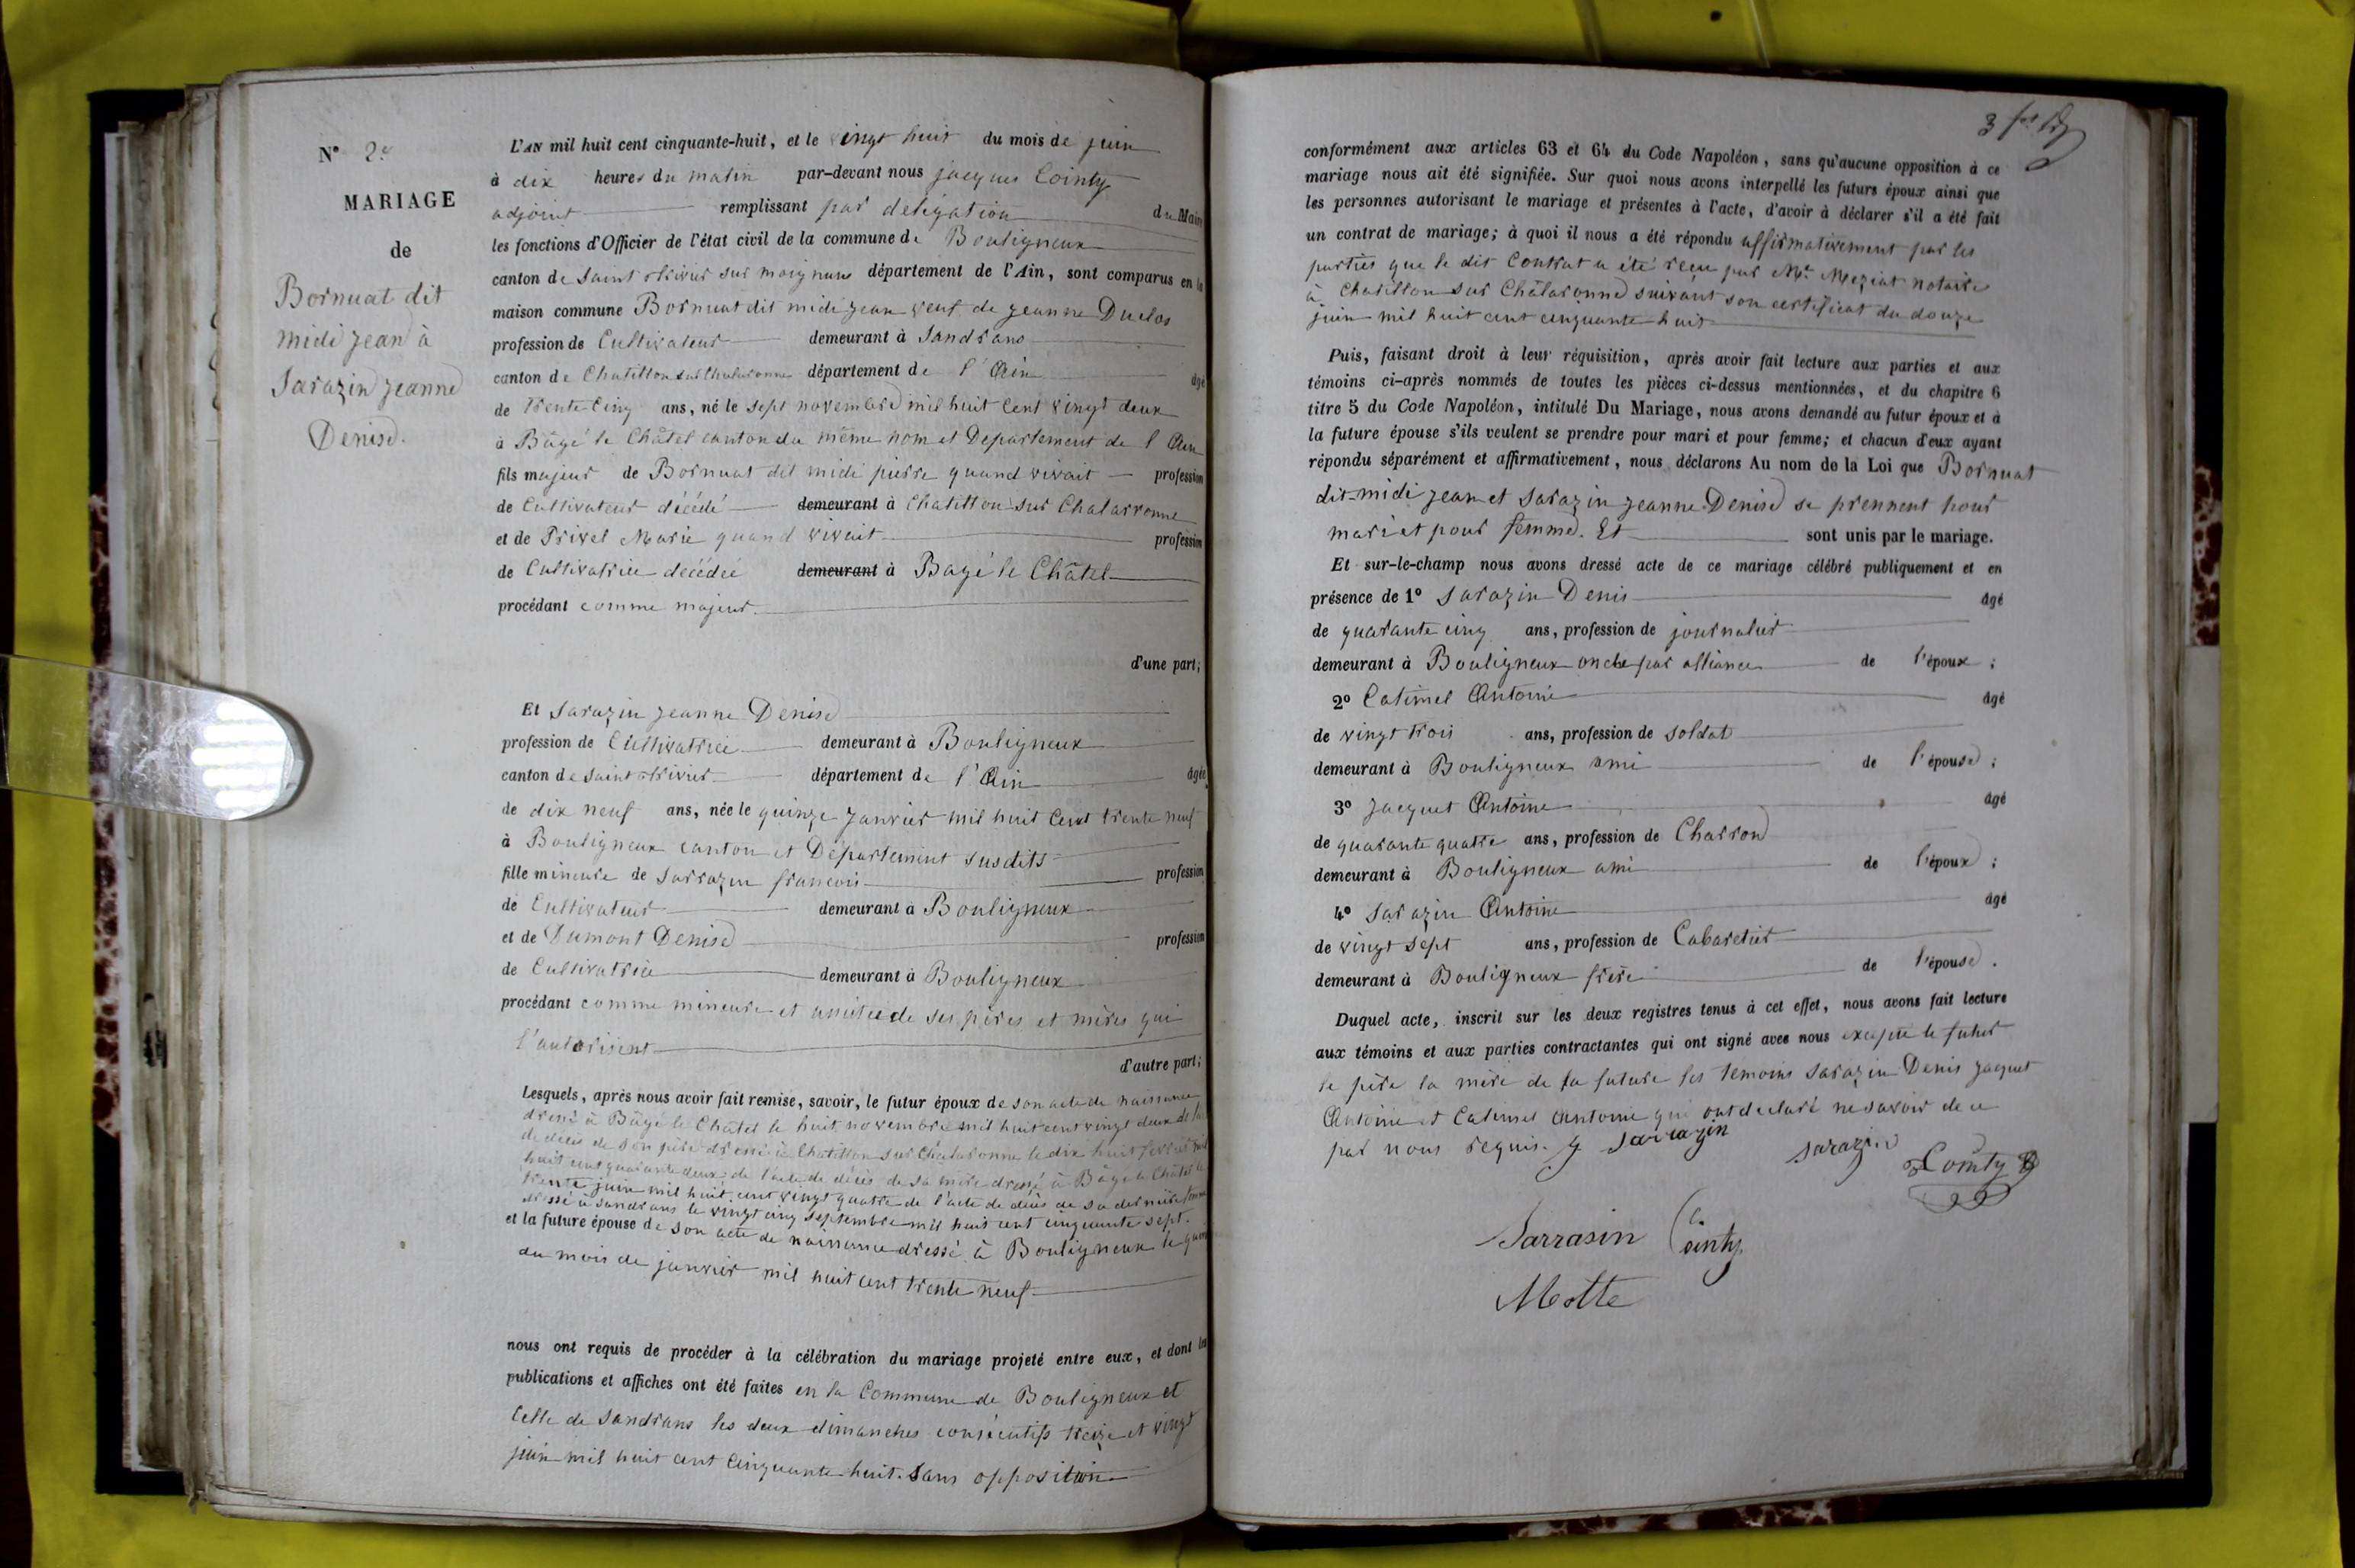 N° 2e
MARIAGE
de
Bornuat dit
midi jean à
Sarazin jeanne
Denise.
L'AN mil huit cent cinquante-huit, et le vingt huit du mois de juin
à dix heures du matin par-devant nous jacques Cointy
adjoint remplissant par deligation du Maire
les fonctions d'Officier de l'état civil de la commune de Bouligneux
canton de saint trivier sur moignans département de l'Ain, sont comparus en la
maison commune Bornuat dit midi jean veuf de jeanne Duclos
profession de Cultivateur demeurant à Sandrans
canton de Chatillon sur Chalaronne département de l'Ain âgé
de trente Cinq ans, né le sept novembre mil huit Cent vingt deux
à Bâgé le Châtel canton du même nom et Departement de l'Ain
fils majeur de Bornuat dit midi pierre quand vivait profession
de Cultivateur décédé demeurant à Chatillon sur Chalaronne
et de Privel Marie quand vivait profession
de Cultivatrice decédée demeurant à Bagé le Châtel
procédant comme majeur.
d'une part;
Et Sarazin jeanne Denise
profession de Cultivatrice demeurant à Bouligneux
canton de saint trivier département de l'Ain âgée
de dix neuf ans, née le quinze janvier mil huit Cent trente neuf
à Bouligneux canton et Departement susdits
fille mineure de Sarrazin francois profession
de Cultivateur demeurant à Bouligneux
et de Dumont Denise profession
de Cultivatrice demeurant à Bouligneux
procédant comme mineure et assistée de ses pères et mères qui
l'autorisent
d'autre part;
Lesquels, après nous avoir fait remise, savoir, le futur époux de son acte de naissance
dressé à Bâgé le Châtel le huit novembre mil huit cent vingt deux de
de décès de son père dressé à Chatillon sur Chalaronne le dix huit
huit cent quarante deux de l'acte de décès de sa mère dressé à Bâgé le Châtel le
trente juin mil huit cent vingt quatre de l'acte de décès de sa dernière femme
dressé à Sandrans le vingt cinq septembre mil huit cent cinquante sept.
et la future épouse de son acte de naissance dressé à Bouligneux le
du mois de janvier mil huit cent trente neuf
nous ont requis de procéder à la célébration du mariage projeté entre eux, et dont les
publications et affiches ont été faites en la Commune de Bouligneux et
Celle de Sandrans les deux dimanches consécutifs treize et vingt
juin mil huit cent Cinquante huit. Sans opposition
conformément aux articles 63 et 64 du Code Napoléon, sans qu'aucune opposition à ce
mariage nous ait été signifiée. Sur quoi nous avons interpellé les futurs époux ainsi que
les personnes autorisant le mariage et présentes à l'acte, d'avoir à déclarer s'il a été fait
un contrat de mariage; à quoi il nous a été répondu affirmativement par les
parties que le dit Contrat a été reçu par Me. Meziat notaire
à Chatillon sur Châlaronne suivant son certificat du douze
juin mil huit cent cinquante huit
Puis, faisant droit à leur réquisition, après avoir fait lecture aux parties et aux
témoins ci-après nommés de toutes les pièces ci-dessus mentionnées, et du chapitre 6
titre 5 du Code Napoléon, intitulé Du Mariage, nous avons demandé au futur époux et à
la future épouse s'ils veulent se prendre pour mari et pour femme; et chacun d'eux ayant
répondu séparément et affirmativement, nous déclarons Au nom de la Loi que Bornuat
dit midi jean et Sarazin jeanne Denise se prennent pour
mari et pour femme. Et sont unis par le mariage.
Et sur-le-champ nous avons dressé acte de ce mariage célébré publiquement et en
présence de 1° Sarazin Denis âgé
de quarante cinq ans, profession de journalier
demeurant à Bouligneux oncle par alliance de l'époux ;
2° Catimel Antoine âgé
de vingt trois ans, profession de soldat
demeurant à Bouligneux ami de l'épouse ;
3° jacquet Antoine âgé
de quarante quatre ans, profession de Charron
demeurant à Bouligneux ami de l'époux ;
4° Sarazin Antoine âgé
de vingt sept ans, profession de Cabaretier
demeurant à Bouligneux frère de l'épouse .
Duquel acte, inscrit sur les deux registres tenus à cet effet, nous avons fait lecture
aux témoins et aux parties contractantes qui ont signé avec nous excepté le futur
le père la mère de la future les temoins Sarazin Denis jacquet
Antoine et Catimel Antoine qui ont declaré ne savoir de ce
par nous requis. J Sarrazin
Sarazin
Cointy
Sarrasin
Cointy
Motte